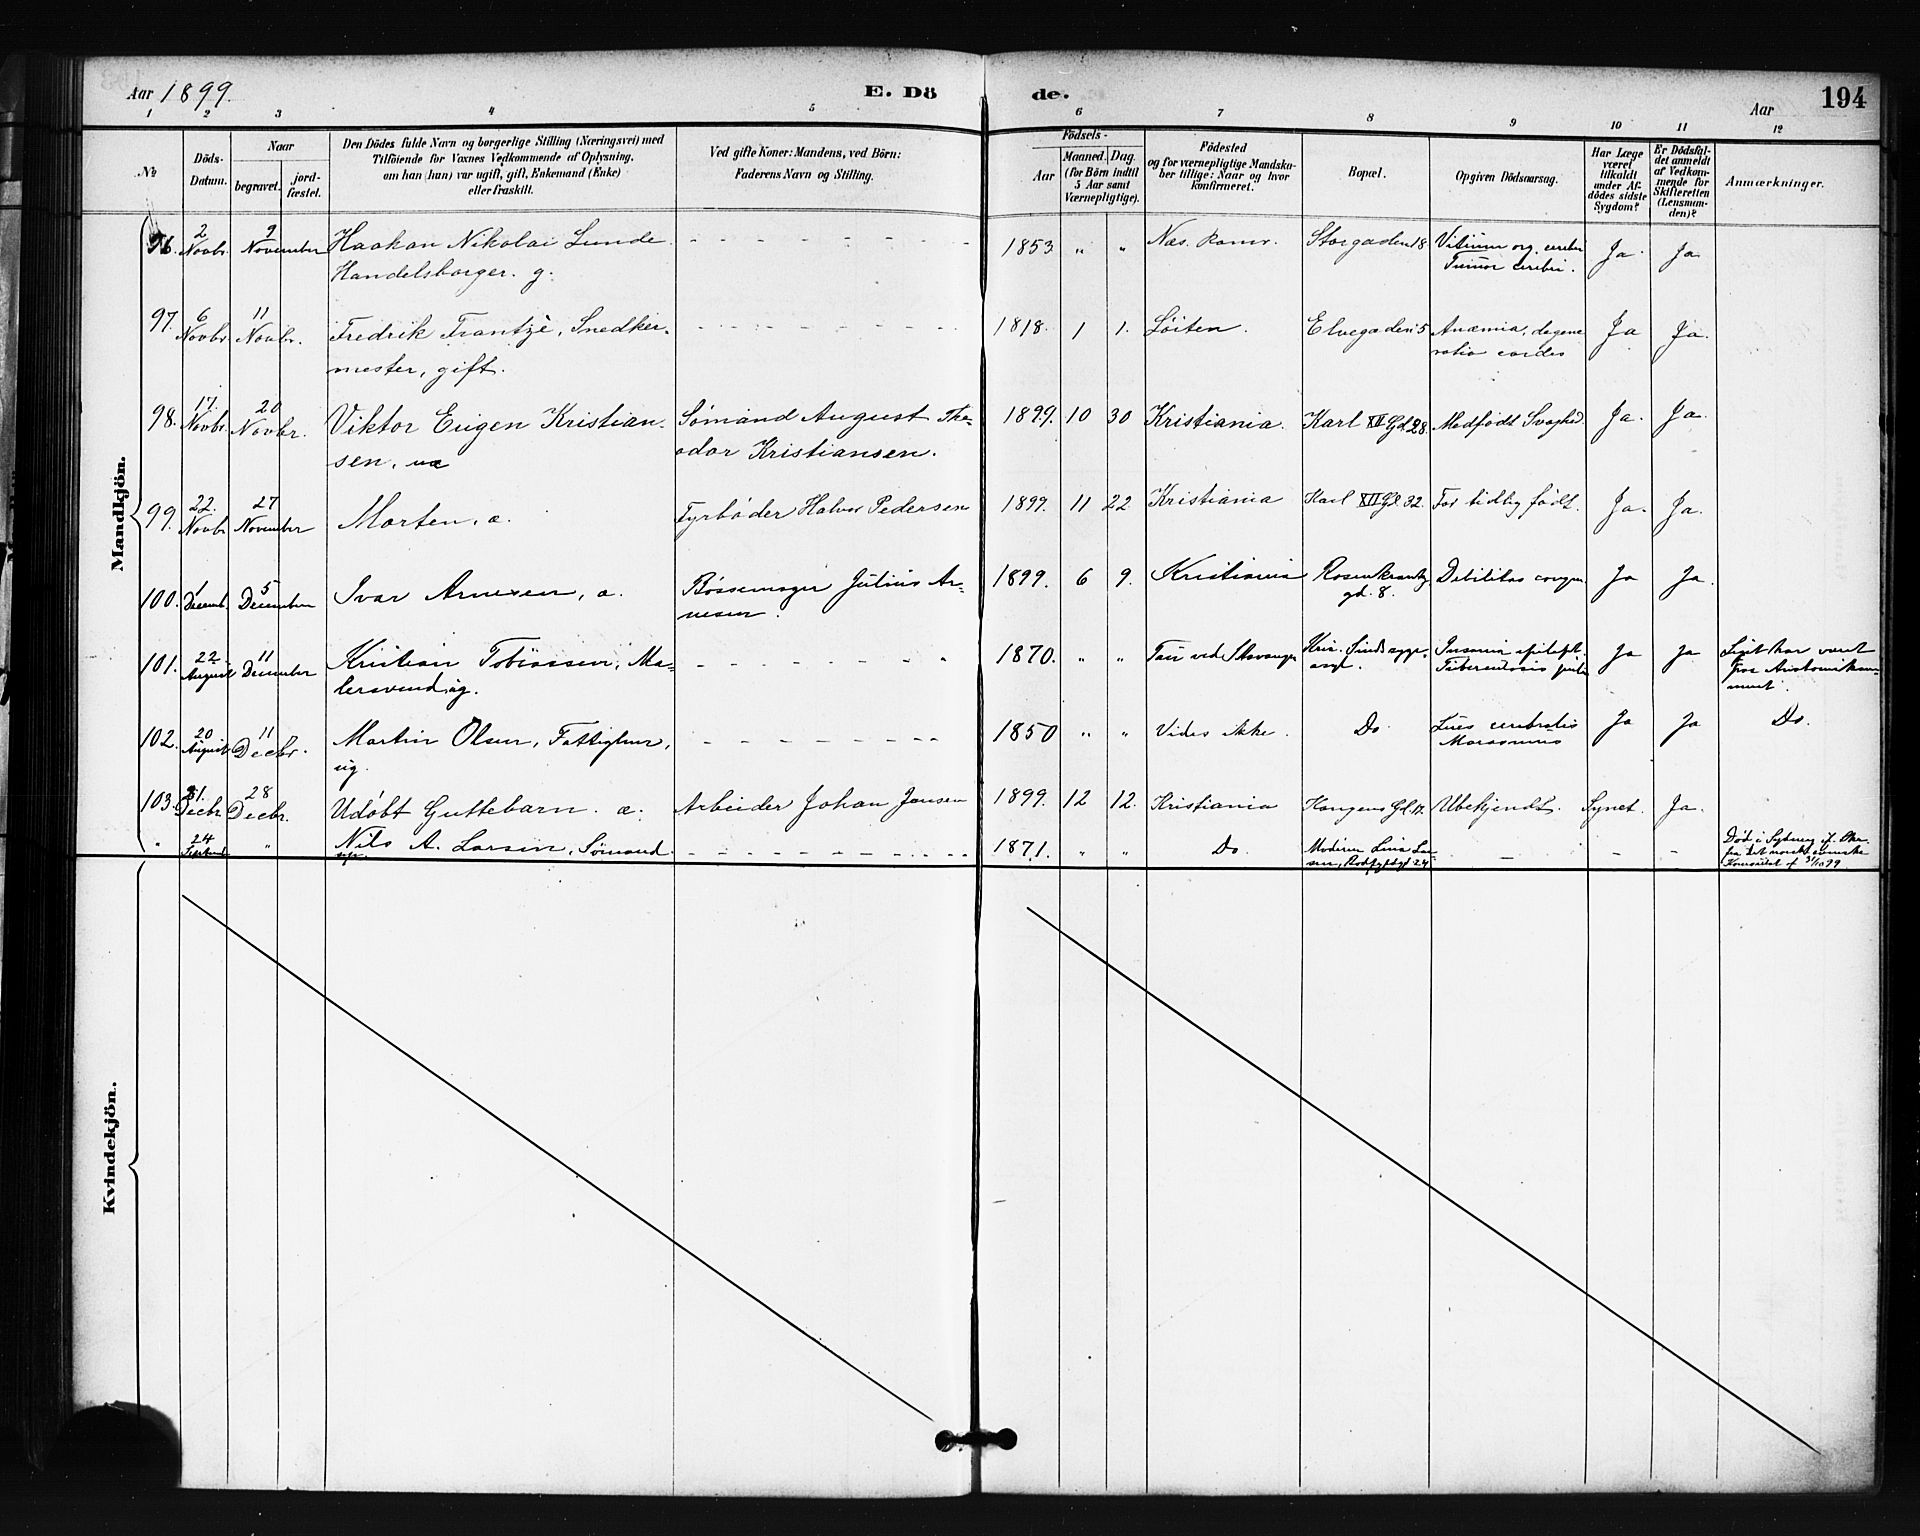 Aar 1899.
E. Dö de.
Aar
194
1 2 3 4 5 6 7 8 9 10 11 12
No
Döds-Datum.
Naar
begravet.
jord-fæstet.
Den Dödes fulde Navn og borgerlige Stilling (Næringsvei) med
Tilföiende for Voxnes Vedkommende af Oplysning,
om han (hun) var ugift, gift, Enkemand (Enke)
eller fraskilt.
Ved gifte Koner: Mandens, ved Börn:
Faderens Navn og Stilling.
Födsels-
Aar
Maaned. Dag.
(for Börn indtil
5 Aar samt
Værnepligtige).
Födested
og for værnepligtige Mandska-
ber tillige: Naar og hvor
konfirmeret.
Bopæl.
Opgiven Dödsaarsag.
Har Læge
været
tilkaldt
under Af-
dödes sidste
Sygdom?
Er Dödsfal-
det anmeldt
af Vedkom-
mende for
Skifteretten
(Lensman-
den)?
Anmærkninger.
Mandkjön.
96. 2 Novbr. 9 November Haakon Nikolai Lunde 1853 " " Næs. Romr. Storgaden 18 Vitium org. cerebri Ja. Ja
Handelsborger. g. Tumor cerebri.
97. 6 Novbr. 11 Novbr. Fredrik Frantzè, Snedker- 1818. 1 1. Löiten. Elvegaden 5 Anæmia, degene Ja Ja.
mester, gift. ratio cordis
98. 17. Novbr. 20 Novbr. Viktor Eugen Kristian- Sømand August The- 1899. 10 30 Kristiania. Karl XII Gd. 28. Medfødt Svaghed. Ja. Ja.
sen. odor Kristiansen.
99. 22. Novbr 27 November Morten, æ. Fyrbøder Halvor Pedersen 1899. 11 22 Kristiania Karl XII Gd. 32. For tidlig født. Ja. Ja.
100. 1 Decemb. 5 December Ivar Arnesen, æ. Bøssemager Julius Ar- 1899. 6 9. Kristiania Rosenkrantz Debilitas congen Ja Ja.
nesen. gd. 8.
101. 22 August 11 December Kristian Tobiassen, Ma- 1870. " " Tau ved Stavanger Kria. Sindssyge- Insania epilept. Ja Ja Liget har været
lersvend, ug. asyl. Tuberculosis paa Anatomikam-
meret.
102. 20 August 11 Decbr. Martin Olsen, Fattiglem, 1850 " " Vides ikke. Do Lues cerebralis Ja Ja Do.
ug. Marasmus
103. 21. Decbr. 28 Decbr. Udøbt Guttebarn. æ. Arbeider Johan Jansen 1899. 12 12. Kristiania Ubekjendt. Synet. Ja.
" 24 " Nils A. Larsen, Sømand 1871. " " Do. Moderen Lina Lar- - - - Død i Sydney
sen, 24 fra det norske svenske
Konsulat af 31/10 99
Kvindekjön.